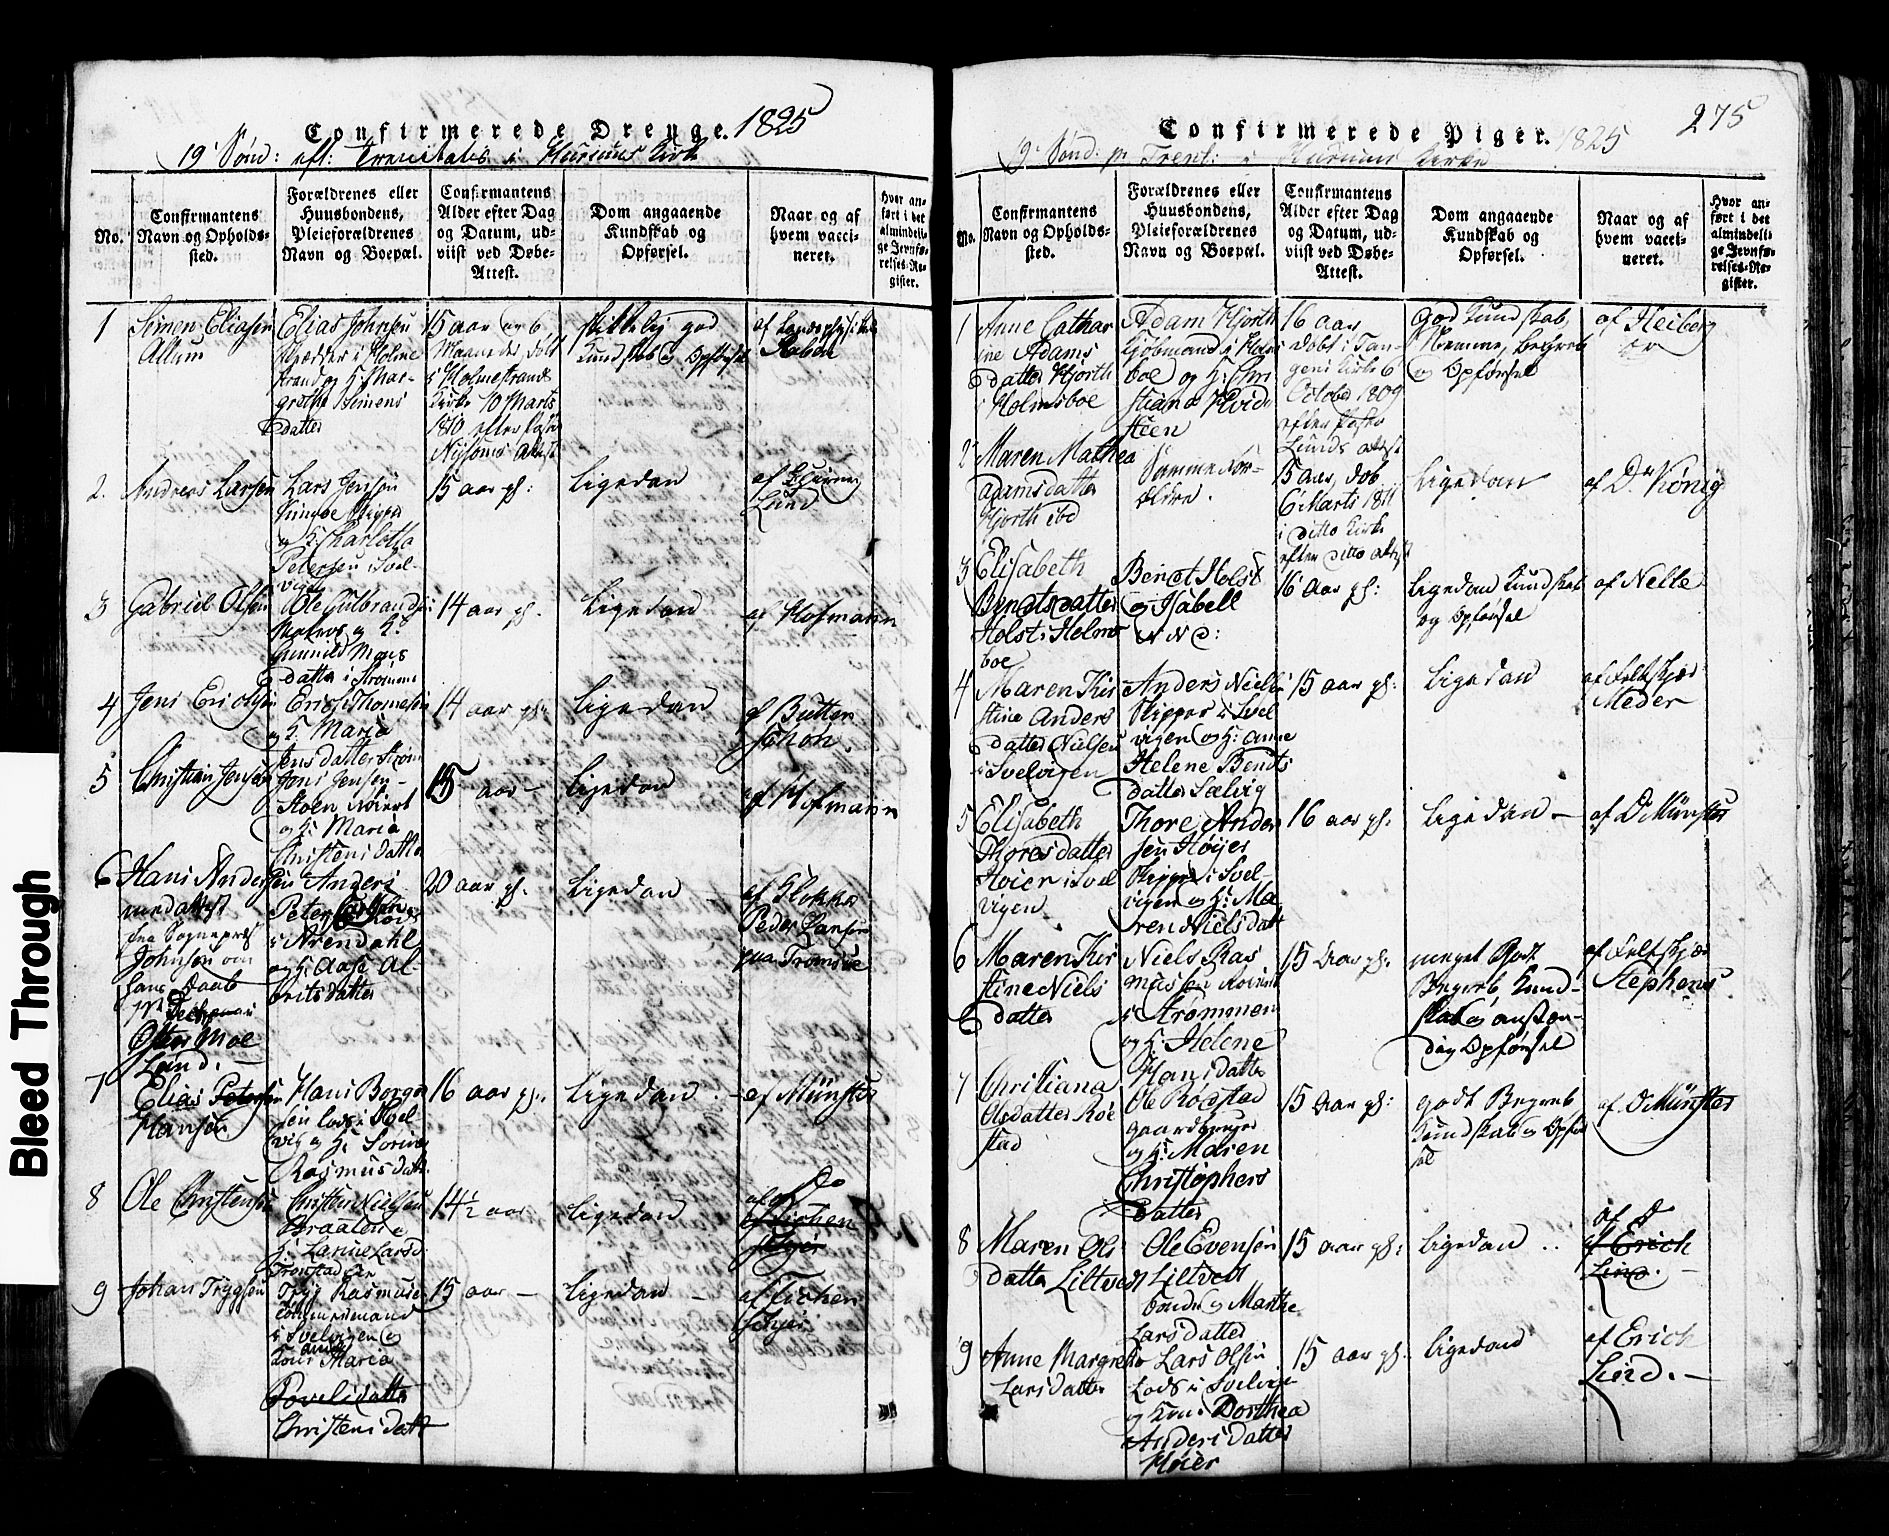 Confirmerede Drenge. 1825
19 Sønd: eft: Trinitatis i Hurums Kirke
No.
Confirmantens Navn og Opholds-sted.
Forældrenes eller Huusbondens, Pleieforældrenes Navn og Boepæl.
Confirmantens Alder efter Dag og Datum, ud-viist ved Døbe-Attest.
Dom angaaende Kundskab og Opførsel.
Naar og af hvem vacci-neret.
Hvor an-ført i det almindeli-ge Jevnfø-relses-Re-gister.
1
Simen Eliasen
Allum
Elias Johnsen
Skrædder i Holme
strand og H: Mar-
grethe Simens
datter
15 aar og 6
Maaneder, døbt
i Holmestrands
Kirke 10 Marts
1810 efter Pastor
Attest
skikkelig god
Kundskab og Opførsel
af Landphysikus
2.
Andreas Larsen
Lars Jensen
Skipper
og H: Charlotta
Petersen i Svel-
vigen
15 aar gl:
Ligedan
af
Lund
3
Gabriel Olsen
Ole Gulbrandsen
og H:
Gunnild Mons
datter i Strømme
14 aar gl.
Ligedan
af Hofmann
4
Jens Erichsen
Erich Thomesen
og H: Maria
Jensdatter Strøm
14 aar gl:
Ligedan
af Butten
schøn.
5
Christian Jensen
Jens Jensen
og H: Maria
Christensdatter
15 aar
Ligedan
af Hofmann
6
Hans Andersen
med Attest
fra Sognepræst
Johnsen om
hans Daab
Lund.
Anders
Petersen
i Arendahl
og H: Aase Al-
britsdatter
20 aar gl.
Ligedan
af Klokker
Peder Hansen
paa Tromsøe
7
Elias Petersen
Hansen
Hans Borge
sen Lods i Svel
vig og H: Sorine
Rasmusdatter
16 aar gl.
Ligedan
af Münster
8
Ole Christensen
Christen Nielsen
Braaten og
H: Lars
14½ aar
Ligedan
af Do
9
Johan Trygsen
Tryg Rasmusen
Tømmermand
i Svelvigen og
Kone Maria
Povelsdatter
Christensdatter
15 aar
Ligedan
af
Confirmerede Piger. 1825
275
19 Sønd: p: Trinit: i Hurums Kirke
No.
Confirmantens Navn og Opholds-sted.
Forældrenes eller Huusbondens, Pleieforældrenes Navn og Boepæl.
Confirmantens Alder efter Dag og Datum, ud-viist ved Døbe-Attest.
Dom angaaende Kundskab og Opførsel.
Naar og af hvem vacci-neret.
Hvor an-ført i det almindeli-ge Jevnfø-relses-Re-gister.
1
Anne Cathar
ine Adams
datter Hjorth
i Holmsboe
Adam Hjorth
Kjøbmand i Holms
boe og H: Chri
stiana Hvid
steen
16 aar
døbt i Tan-
gens Kirke 6
October 1809
efter Pastor
Lunds Attest
God Kundskab,
Nemme, Begreb
og Opførsel
af Heiberg
2
Maren Mathea
Adamsdatter
Hjorth ibd
Samme For-
ældre.
15 aar, døb
6 Marts 1811
i ditto Kirke
efter ditto Attest
Ligedan
af Dr König
3
Elisabeth
Bendtsdatter
Holst i Holms
boe
Bendt Holst
og Isabell
N N:
16 Aar gl:
Ligedan Kundskab
og Opførsel
af Nelle
4
Maren Kir
stine Anders
datter Nielsen
i Svelvigen
Anders Nielsen
Skipper i Svel
vigen og H: Anne
Helene Bendts
datter Sælvig
15 aar gl:
Ligedan
af Feltskjær
Meder
5
Elisabeth
Thoresdatter
Høier i Svel
vigen
Thore Ander
sen Høyer
Skipper i Svel-
vigen og H: Ma
ren Nielsdatt
16 aar gl.
Ligedan
af D Münster
6
Maren Kir
stine Niels
datter
Niels Ras
mussen
i Strømmen
og H: Helene
Hansdatter
15 Aar gl.
meget Godt
Begreb, Kund-
skab og anstæn-
dig Opførsel
af Feltskjær
Stephens
7
Christiana
Olsdatter Røe
stad
Ole Röestad
gaardbruger
og H: Maren
Christophers
datter
15 Aar gl:
godt Begreb
Kundskab og Opfør
sel
af D Münster
8
Maren Ols
datter Liltvedt
Ole Evensen
Liltvedt
bonde og Marthe
Larsdatter
15 aar gl:
Ligedan
af D
af Erich
Lind.
9
Anne Margrethe
Larsdatter
Lars Olsen
Lods i Svelvig
og Kone Dorthea
Andersdatter
Høier
15 aar gl.
Ligedand
af Erich
Lind.
Bleed Through